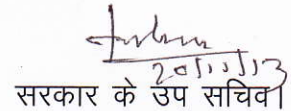 20/11/13
सरकार के उप सचिव।